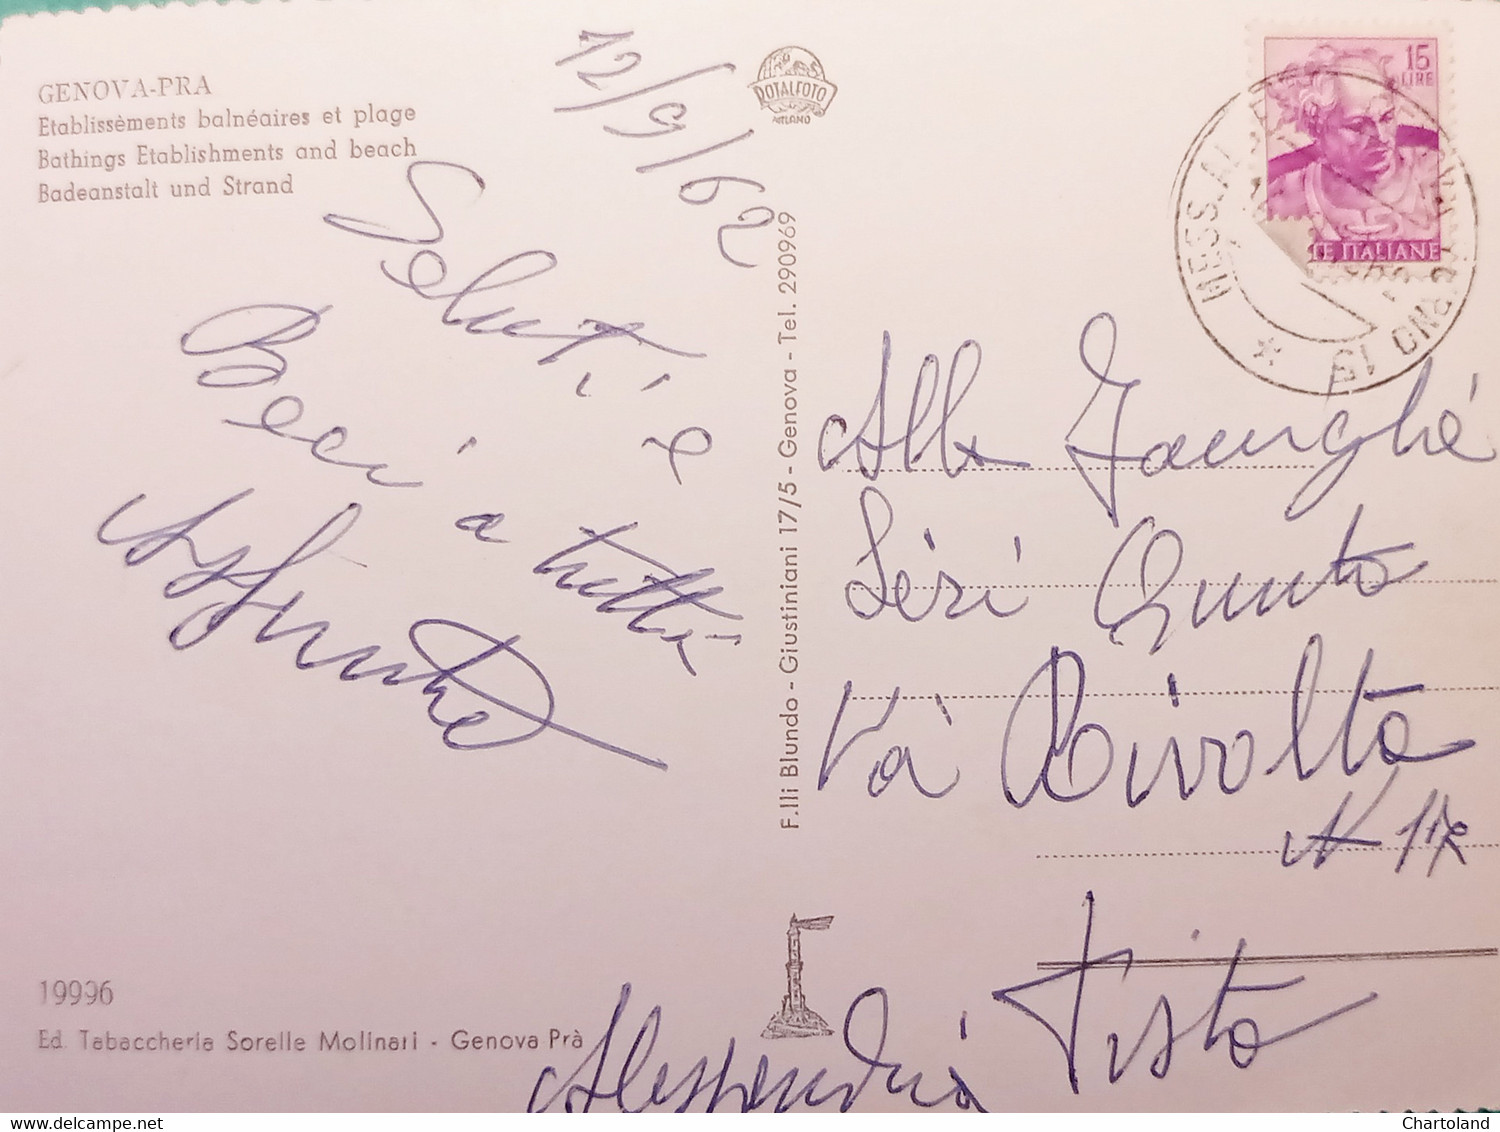 GENOVA-PRA
Etablissèments balnéaires et plage
Bathings Etablishments and beach
Badeanstalt und Strand
12/9/62
ROTALFOTO
MILANO
15
LIRE
TE ITALIANE
MESS.AL
Saluti e
Baci a tutti
F.lli Blundo - Giustiniani 17/5 - Genova - Tel. 290969
Alla
Quinto
Via Rivolta
N 17
Alessandria
19996
Ed. Tabaccheria Sorelle Molinari - Genova Prà
Chartoland